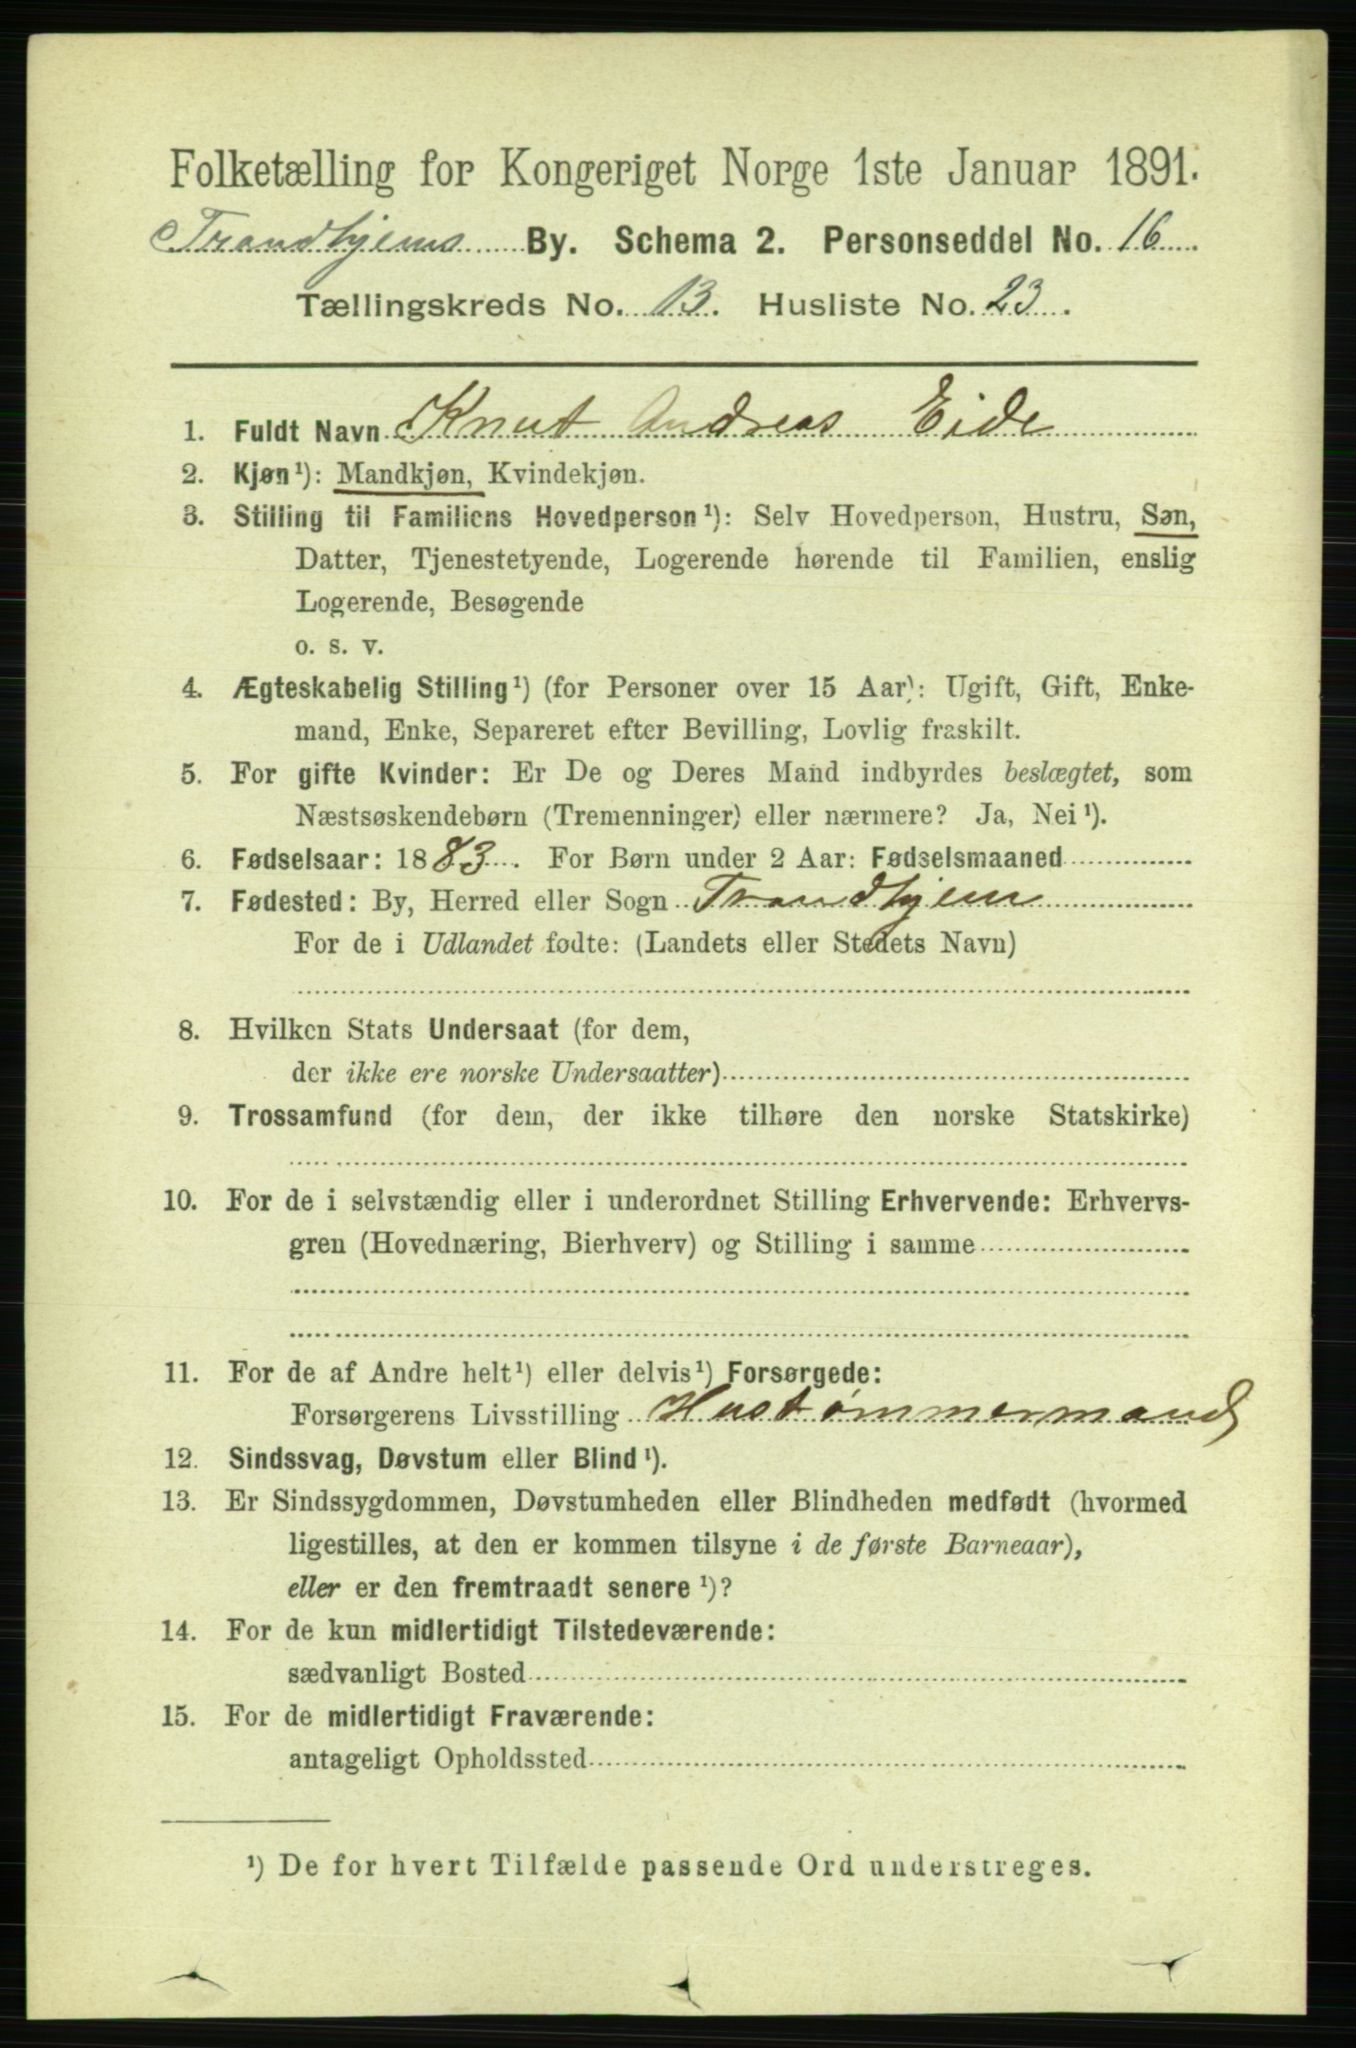 Folketælling for Kongeriget Norge 1ste Januar 1891.
Trondhjems By. Schema 2. Personseddel No. 16
Tællingskreds No. 13. Husliste No. 23.
1. Fuldt Navn Knut Andreas Eide
2. Kjøn¹): Mandkjøn, Kvindekjøn.
3. Stilling til Familiens Hovedperson¹): Selv Hovedperson, Hustru, Søn,
Datter, Tjenestetyende, Logerende hørende til Familien, enslig
Logerende, Besøgende
o. s. v.
4. Ægteskabelig Stilling¹) (for Personer over 15 Aar): Ugift, Gift, Enke-
mand, Enke, Separeret efter Bevilling, Lovlig fraskilt.
5. For gifte Kvinder: Er De og Deres Mand indbyrdes beslægtet, som
Næstsøskendebørn (Tremenninger) eller nærmere? Ja, Nei¹).
6. Fødselsaar: 1883. For Børn under 2 Aar: Fødselsmaaned
7. Fødested: By, Herred eller Sogn Trondhjem
For de i Udlandet fødte: (Landets eller Stedets Navn)
8. Hvilken Stats Undersaat (for dem,
der ikke ere norske Undersaatter)
9. Trossamfund (for dem, der ikke tilhøre den norske Statskirke)
10. For de i selvstændig eller i underordnet Stilling Erhvervende: Erhvervs-
gren (Hovednæring, Bierhverv) og Stilling i samme
11. For de af Andre helt¹) eller delvis¹) Forsørgede:
Forsørgerens Livsstilling Hustømmermand
12. Sindssvag, Døvstum eller Blind¹).
13. Er Sindssygdommen, Døvstumheden eller Blindheden medfødt (hvormed
ligestilles, at den er kommen tilsyne i de første Barneaar),
eller er den fremtraadt senere¹)?
14. For de kun midlertidigt Tilstedeværende:
sædvanligt Bosted
15. For de midlertidigt Fraværende:
antageligt Opholdssted
¹) De for hvert Tilfælde passende Ord understreges.